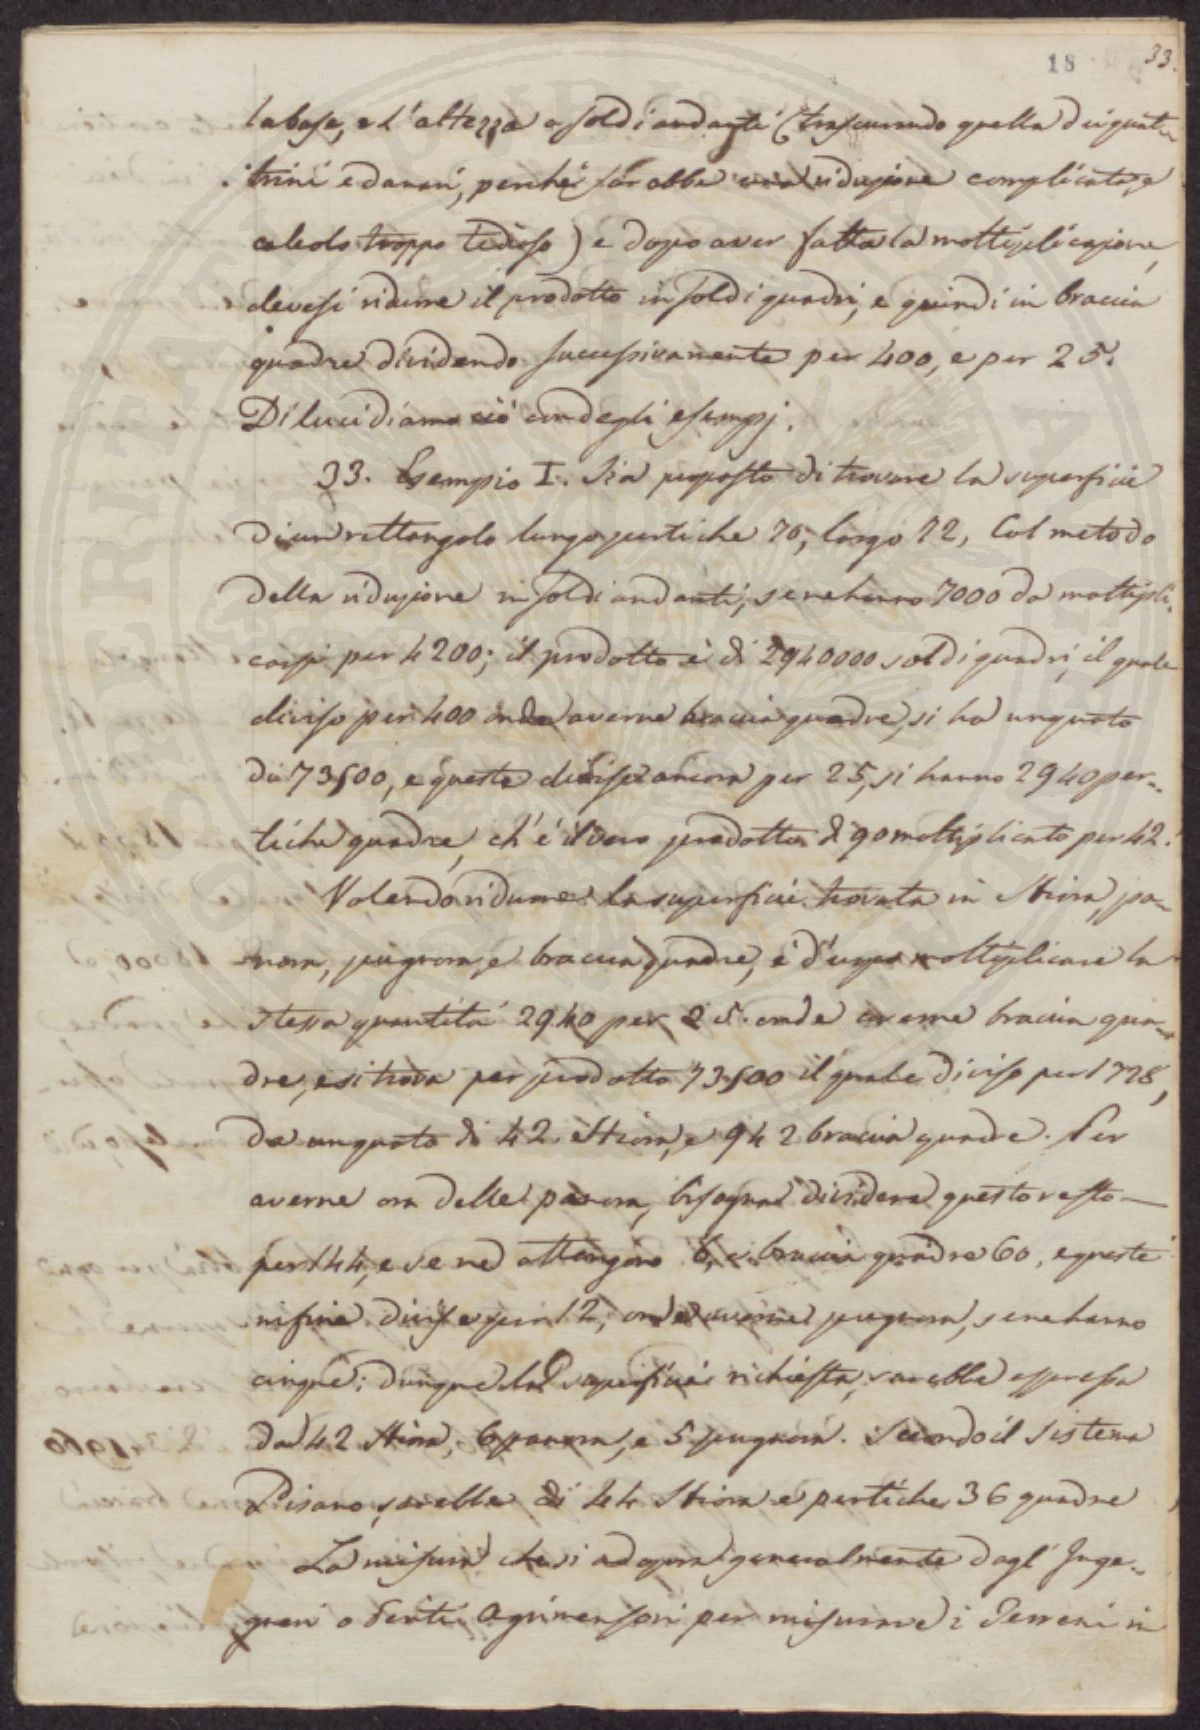 18 33.
la base, e l'altezza a soldi andanti (trascurando quella di quat-
trini e danari, perchè sarebbe una riduzione complicata, e
calcolo troppo tedioso) e dopo aver fatta la moltiplicazione,
devesi ridurre il prodotto in soldi quadri, e quindi in braccia
quadre dividendo successivamente per 400, e per 25.
Dilucidiamo ciò con degli esempj.
33. Esempio I. Sia proposto di trovare la superficie
di un rettangolo lungo pertiche 70, largo 42, Col metodo
della riduzione in soldi andanti, se ne hanno 7000 da moltipli-
carsi per 4200; il prodotto è di 2940000 soldi quadri, il quale
diviso per 400 onde averne braccia quadre, si ha un quoto
di 73500, e queste divise ancora per 25, si hanno 2940 per-
tiche quadre, ch'è il vero prodotto di 70 moltiplicato per 42.
Volendo ridurre la superficie trovata in Stiora, pa-
nora, pugnora, e braccia quadre, è d'uopo moltiplicare la
stessa quantità 2940 per 25. onde averne braccia qua-
dre, e si trova per prodotto 73500 il quale diviso per 1728,
da un quoto di 42 Stiora, e 942 braccia quadre. Per
averne ora delle panora, bisogna dividere questo resto
per 144, e se ne ottengono 6, e braccia quadre 60, e queste
infine divise per 12, onde averne pugnora, se ne hanno
cinque: dunque la superficie richiesta, sarebbe espressa
da 42 Stiora, 6 panora, e 5 pugnora. Secondo il sistema
Pisano, sarebbe di 44 Stiora e pertiche 36 quadre
La misura che si adopra generalmente dagl' Inge-
gneri o Periti Agrimensori per misurare i Terreni in